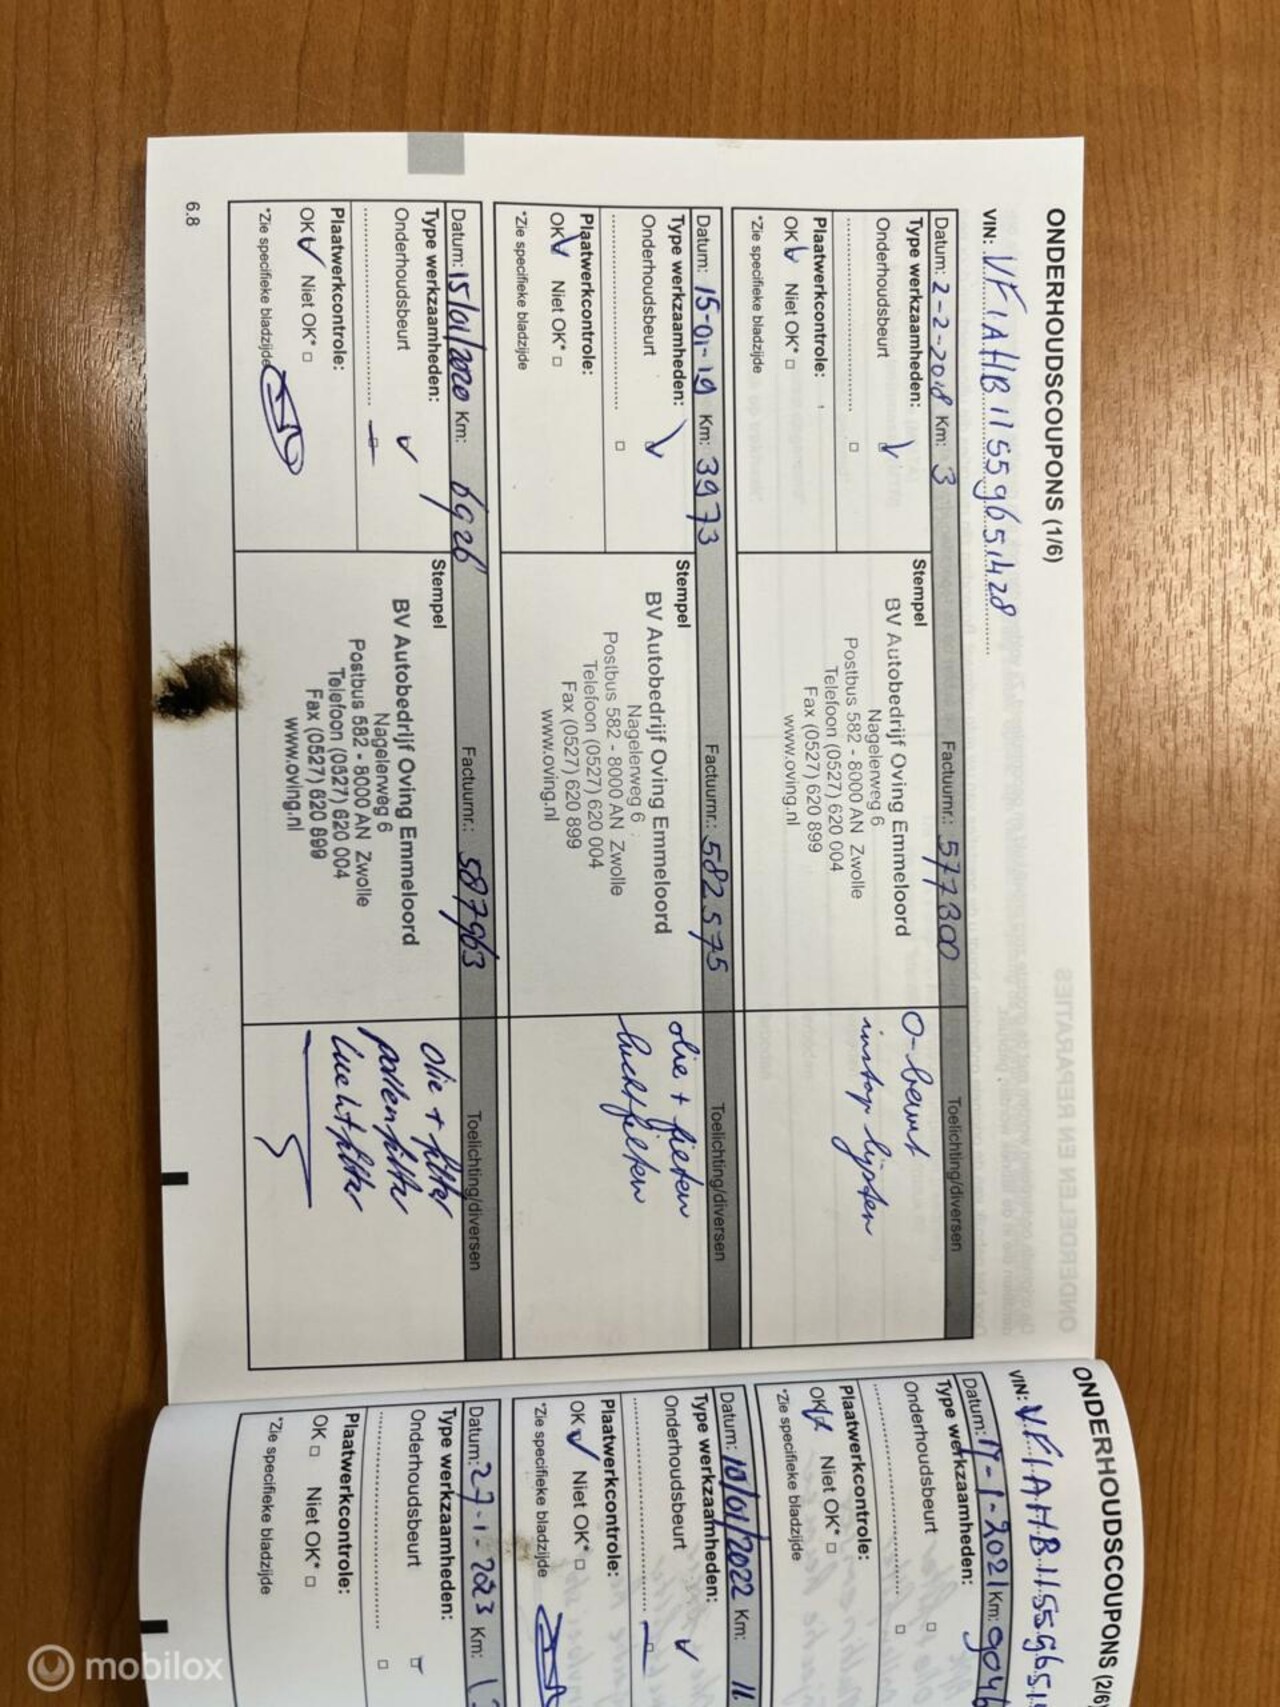 ONDERHOUDSCOUPONS (1/6)
VIN: VF1AHB11559651428
Datum: 2-2-2018 Km: 3 Factuurnr.: 577300 Toelichting/diversen
Type werkzaamheden:
Onderhoudsbeurt
Plaatwerkcontrole:
OK Niet OK*
*Zie specifieke bladzijde
Stempel
BV Autobedrijf Oving Emmeloord
Nagelerweg 6
Postbus 582 - 8000 AN Zwolle
Telefoon (0527) 620 004
Fax (0527) 620 899
www.oving.nl
0-beurt
instap lijsten
Datum: 15-01-19 Km: 3973 Factuurnr.: 582575 Toelichting/diversen
Type werkzaamheden:
Onderhoudsbeurt
Plaatwerkcontrole:
OK Niet OK*
*Zie specifieke bladzijde
Stempel
BV Autobedrijf Oving Emmeloord
Nagelerweg 6
Postbus 582 - 8000 AN Zwolle
Telefoon (0527) 620 004
Fax (0527) 620 899
www.oving.nl
olie +
Datum: 15/01/2020 Km: 6926 Factuurnr.: 587963 Toelichting/diversen
Type werkzaamheden:
Onderhoudsbeurt
Plaatwerkcontrole:
OK Niet OK*
*Zie specifieke bladzijde
Stempel
BV Autobedrijf Oving Emmeloord
Nagelerweg 6
Postbus 582 - 8000 AN Zwolle
Telefoon (0527) 620 004
Fax (0527) 620 899
www.oving.nl
olie + filter
pollenfilter
luchtfilter
6.8
ONDERHOUDSCOUPONS (2/6
VIN: VF1AHB11559651
Datum: 17-1-2021 Km: 9046
Type werkzaamheden:
Onderhoudsbeurt
Plaatwerkcontrole:
OK Niet OK*
*Zie specifieke bladzijde
Datum: 10/01/2022 Km: 11
Type werkzaamheden:
Onderhoudsbeurt
Plaatwerkcontrole:
OK Niet OK*
*Zie specifieke bladzijde
Datum: 27-1-2023 Km:
Type werkzaamheden:
Onderhoudsbeurt
Plaatwerkcontrole:
OK Niet OK*
*Zie specifieke bladzijde
mobilox